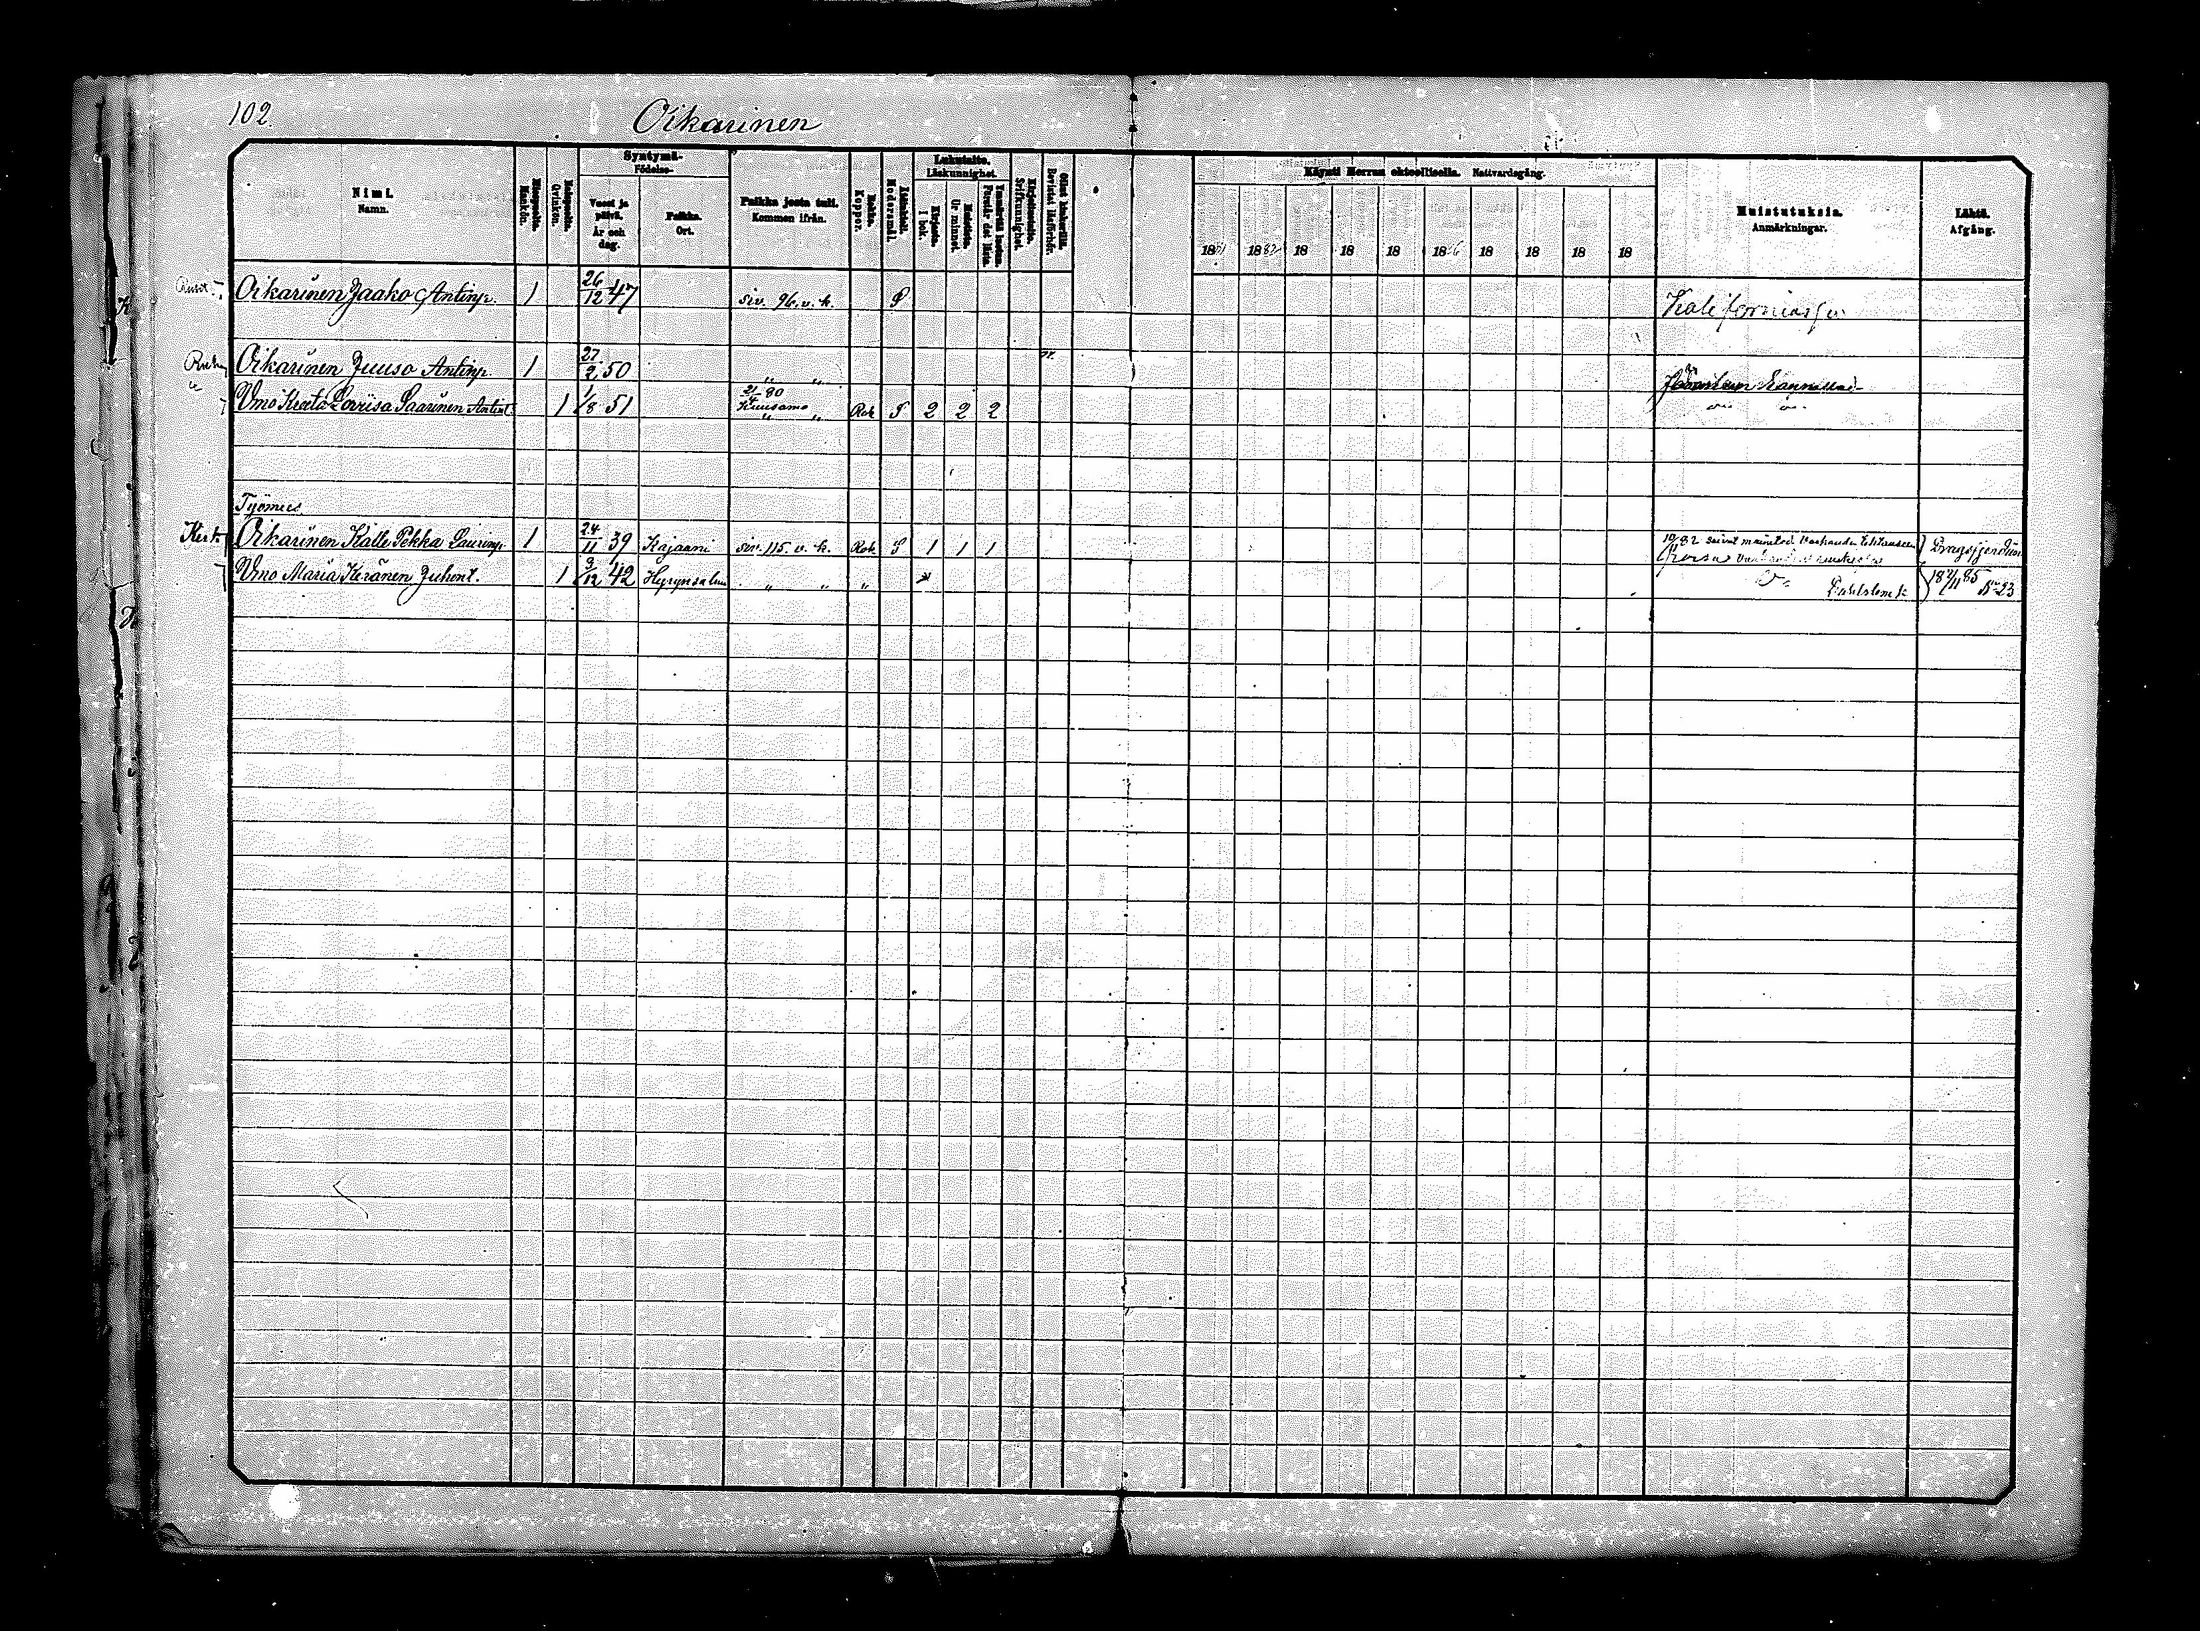 102.
Oikarinen
Nimi. Namn.
Miespuolia. Mankön.
Naispuolia. Qvinkön.
Syntymä- Födelse-
Vuosi ja päivä. År och dag.
Paikka. Ort.
Paikka josta tuli. Kommen ifrån.
Rokko. Koppor.
Äidinkieli. Modersmål.
Lukutaito. Läskunnighet.
Kirjasta. I bok.
Muistista. Ur minnet.
Kirjoitustaito. Skrifkunnighet.
Käynti Herran ehtoollisella. Nattvardsgång.
1881 1882 18 18 18 1886 18 18 18 18
Muistutuksia. Anmärkningar.
Lähtö. Afgång.
Oikarinen Jaako Antinp. 1 26/12 47 siv. 96. v. k. S Kaliforniassa
Oikarinen Juuso Antinp. 1 27/2 50 " "
21/4 80
Vmo Kerta Loviisa Saarinen Antint. 1 1/8 51 Kuusamo " " Rok S 2 2 2
Työmies
Oikarinen Kalle Pekka Laurinp. 1 24/11 39 Kajaani siv. 115. v. k. Rok. S 1 1 1 Dragsfjerdiin
Vmo Maria Keränen Juhont. 1 9/12 42 Hyrynsalmi " " " 18 85 N:o 23